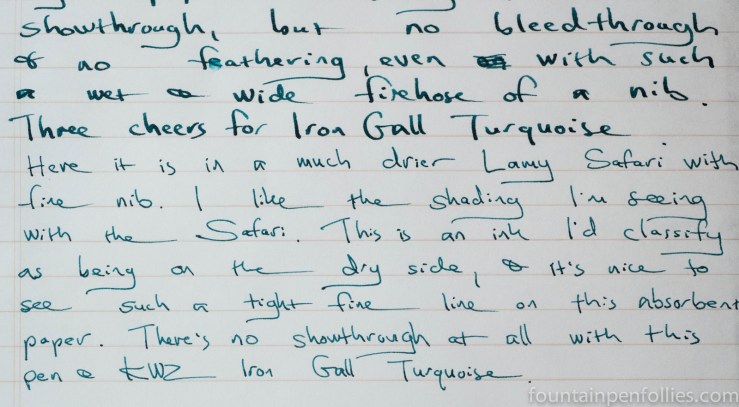 showthrough, but no bleedthrough
& no feathering, even with such
a wet & wide firehose of a nib.
Three cheers for Iron Gall Turquoise
Here it is in a much drier Lamy Safari with
fine nib. I like the shading I'm seeing
with the Safari. This is an ink I'd classify
as being on the dry side, & it's nice to
see such a tight fine line on this absorbent
paper. There's no showthrough at all with this
pen & KWZ Iron Gall Turquoise.
fountainpenfollies.com